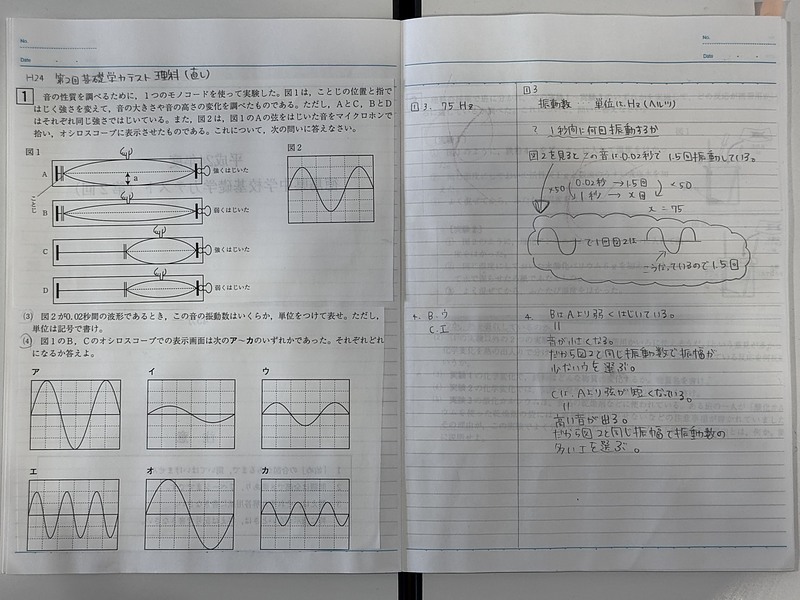 No.
Date
H.24 第2回基礎学力テスト 理科 (直し)
1 音の性質を調べるために，1つのモノコードを使って実験した。図1は，ことじの位置と指で
はじく強さを変えて，音の大きさや音の高さの変化を調べたものである。ただし，AとC，BとD
はそれぞれ同じ強さではじいている。また，図2は，図1のAの弦をはじいた音をマイクロホンで
拾い，オシロスコープに表示させたものである。これについて，次の問いに答えなさい。
図1
図2
A
a
強くはじいた
ことじ
B
弱くはじいた
C
強くはじいた
D
弱くはじいた
(3) 図2が0.02秒間の波形であるとき，この音の振動数はいくらか，単位をつけて表せ。ただし，
単位は記号で書け。
(4) 図1のB，Cのオシロスコープでの表示画面は次のア～カのいずれかであった。それぞれどれ
になるか答えよ。
ア
イ
ウ
エ
オ
カ
No.
Date
1 3. 75 Hz
1 3
振動数 : 単位は Hz (ヘルツ)
1秒間に何回振動するか
図2を見るとこの音は0.02秒で1.5回振動している。
×50 0.02秒 → 1.5回 ×50
1秒 → x回
x = 75
で1回 図2は
こうなっているので1.5回
4. B.ウ
C.エ
4. BはAより弱くはじいている。
=
音が小さくなる。
だから図2と同じ振動数で振幅が
小さいウを選ぶ。
CはAより弦が短くなっている。
=
高い音が出る。
だから図2と同じ振幅で振動数の
多いエを選ぶ。